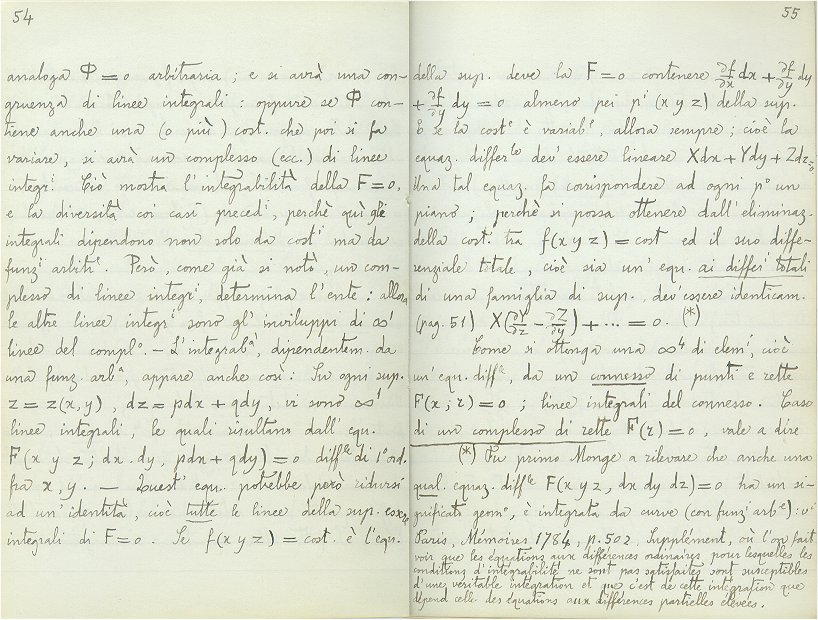 54
analoga Φ = 0 arbitraria ; e si avrà una con-
gruenza di linee integrali : oppure se Φ con-
tiene anche una (o più) cost. che poi si fa
variare, si avrà un complesso (ecc.) di linee
integrⁱ. Ciò mostra l'integrabilità della F = 0,
e la diversità coi casi precedⁱ, perchè quì gli
integrali dipendono non solo da costⁱ ma da
funzⁱ arbitⁱᵉ. Però, come già si notò, un com-
plesso di linee integrⁱ, determina l'ente : allora
le altre linee integrⁱ sono gl' inviluppi di ∞¹
linee del complº. – L'integrabᵃ, dipendentem. da
una funz. arbᵃ, appare anche così : Su ogni sup.
z = z(x,y) , dz = pdx + qdy , vi sono ∞¹
linee integrali, le quali risultano dall' equ.
F(x y z ; dx . dy, pdx + qdy) = 0 diffˡᵉ di 1º ord.
fra x, y. — Quest' equ. potrebbe però ridursi
ad un' identità, cioè tutte le linee della sup. essere
integrali di F = 0. Se f(x y z) = cost. è l'equ.
55
della sup. deve la F = 0 contenere ∂f/∂x dx + ∂f/∂y dy
+ ∂f/∂y dy = 0 almeno pei pⁱ (x y z) della sup.
E se la costᵉ è variabᵉ, allora sempre ; cioè la
equaz. differˡᵉ dev' essere lineare Xdx + Ydy + Zdz = 0
Una tal equaz. fa corrispondere ad ogni pº un
piano ; perchè si possa ottenere dall' eliminaz.
della cost. tra f(x y z) = cost ed il suo diffe-
renziale totale, cioè sia un' equ. ai differⁱ totali
di una famiglia di sup., dev' essere identicam.
(pag. 51) X(∂Y/∂z − ∂Z/∂y) + ··· = 0. (*)
Come si ottenga una ∞⁴ di elemⁱ, cioè
un' equ. diffˡᵉ, da un connesso di punti e rette
F(x ; r) = 0 ; linee integrali del connesso. Caso
di un complesso di rette F(r) = 0, vale a dire
(*) Fu primo Monge a rilevare che anche una
qual. equaz. diffˡᵉ F(x y z, dx dy dz) = 0 ha un si-
gnificato geomº, è integrata da curve (con funzⁱ arbⁱᵉ) : vⁱ
Paris, Mémoires 1784, p. 502, Supplément, où l'on fait
voir que les équations aux différences ordinaires pour lesquelles les
conditions d'intégrabilité ne sont pas satisfaites sont susceptibles
d'une véritable intégration et que c'est de cette intégration que
dépend celle des équations aux différences partielles élevées.